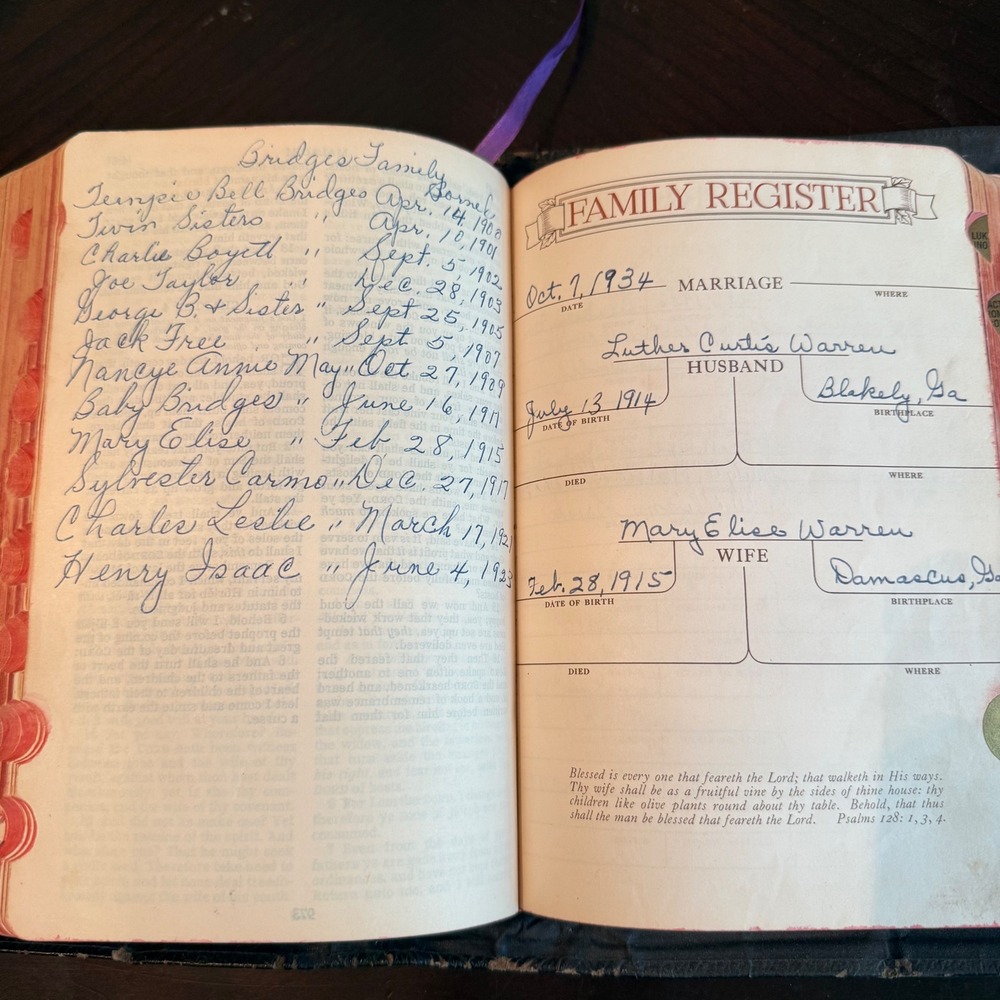 Bridges Family
Born
Tempie Bell Bridges Apr. 14, 1900
Twin Sisters " Apr. 10, 1901
Charlie Boyett " Sept. 5, 1902
Joe Taylor " Dec. 28, 1903
George B. & Sister " Sept 25, 1905
Jack Free " Sept 5, 1907
Nancye Annie May " Oct 27, 1909
Baby Bridges " June 16, 1911
Mary Elise " Feb. 28, 1915
Sylvester Carmo " Dec. 27, 1917
Charles Leslie " March 17, 192
Henry Isaac " June 4, 1923
973
FAMILY REGISTER
Oct. 7, 1934 MARRIAGE
DATE WHERE
Luther Curtis Warren
HUSBAND
July 13 1914 Blakely, Ga
DATE OF BIRTH BIRTHPLACE
DIED WHERE
Mary Elise Warren
WIFE
Feb. 28, 1915 Damascus, Ga
DATE OF BIRTH BIRTHPLACE
DIED WHERE
Blessed is every one that feareth the Lord; that walketh in His ways.
Thy wife shall be as a fruitful vine by the sides of thine house: thy
children like olive plants round about thy table. Behold, that thus
shall the man be blessed that feareth the Lord. Psalms 128: 1, 3, 4.
LUK